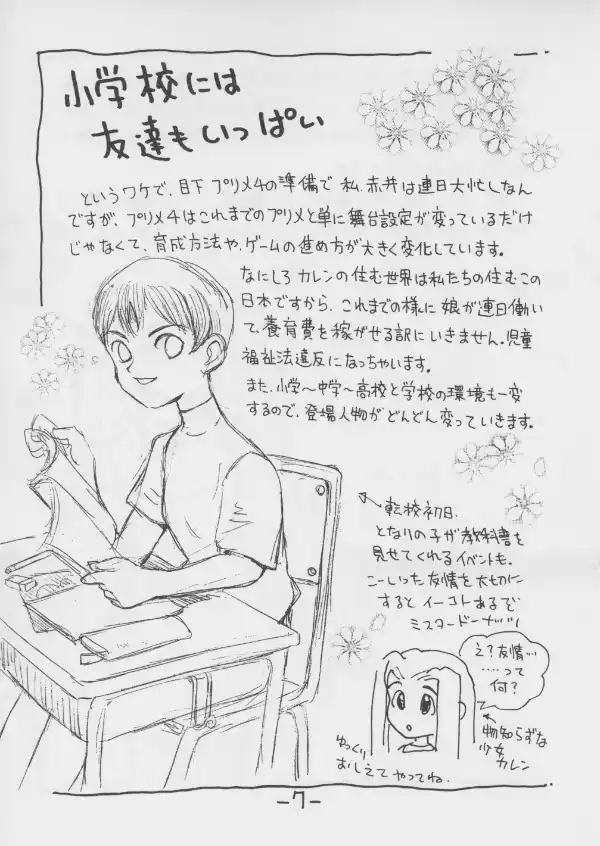 小学校には
友達もいっぱい
というワケで、目下 プリメ4の準備で 私、赤井は連日大忙しなん
ですが、プリメ4はこれまでのプリメと単に舞台設定が変っているだけ
じゃなくて、育成方法や、ゲームの進め方が大きく変化しています。
なにしろ カレンの住む世界は私たちの住むこの
日本ですから、これまでの様に 娘が連日働い
て、養育費を稼がせる訳にいきません。児童
福祉法違反になっちゃいます。
また、小学〜中学〜高校と学校の環境も一変
するので、登場人物がどんどん変っていきます。
転校初日、
となりの子が教科書を
見せてくれるイベントも。
こーいった友情を大切に
すると イーコトあるぞ
ミスタードーナッツ!
え?友情…
……って
何?
物知らずな
少女
カレン
ゆっくり
おしえてやってね.
-7-